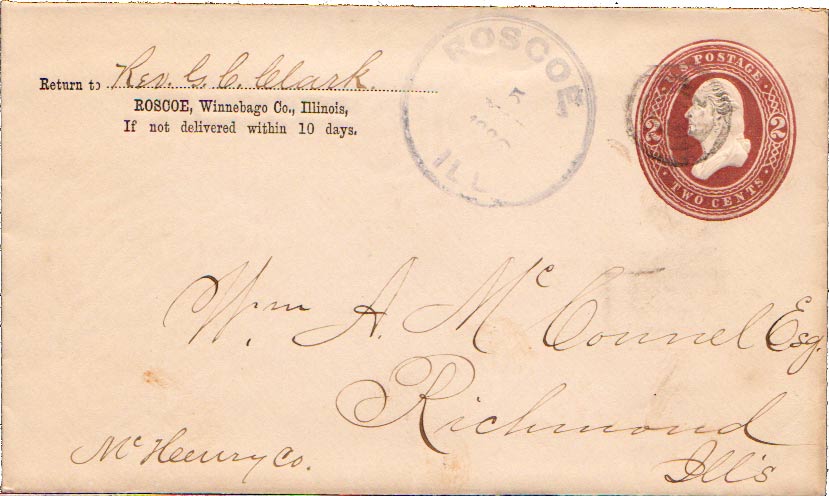 Return to Rev. G. C. Clark.
ROSCOE, Winnebago Co., Illinois,
If not delivered within 10 days.
ROSCOE
ILL
U.S. POSTAGE
2 2
TWO CENTS
Wm A. McConnel Esq.
Richmond
Ills
McHenry Co.